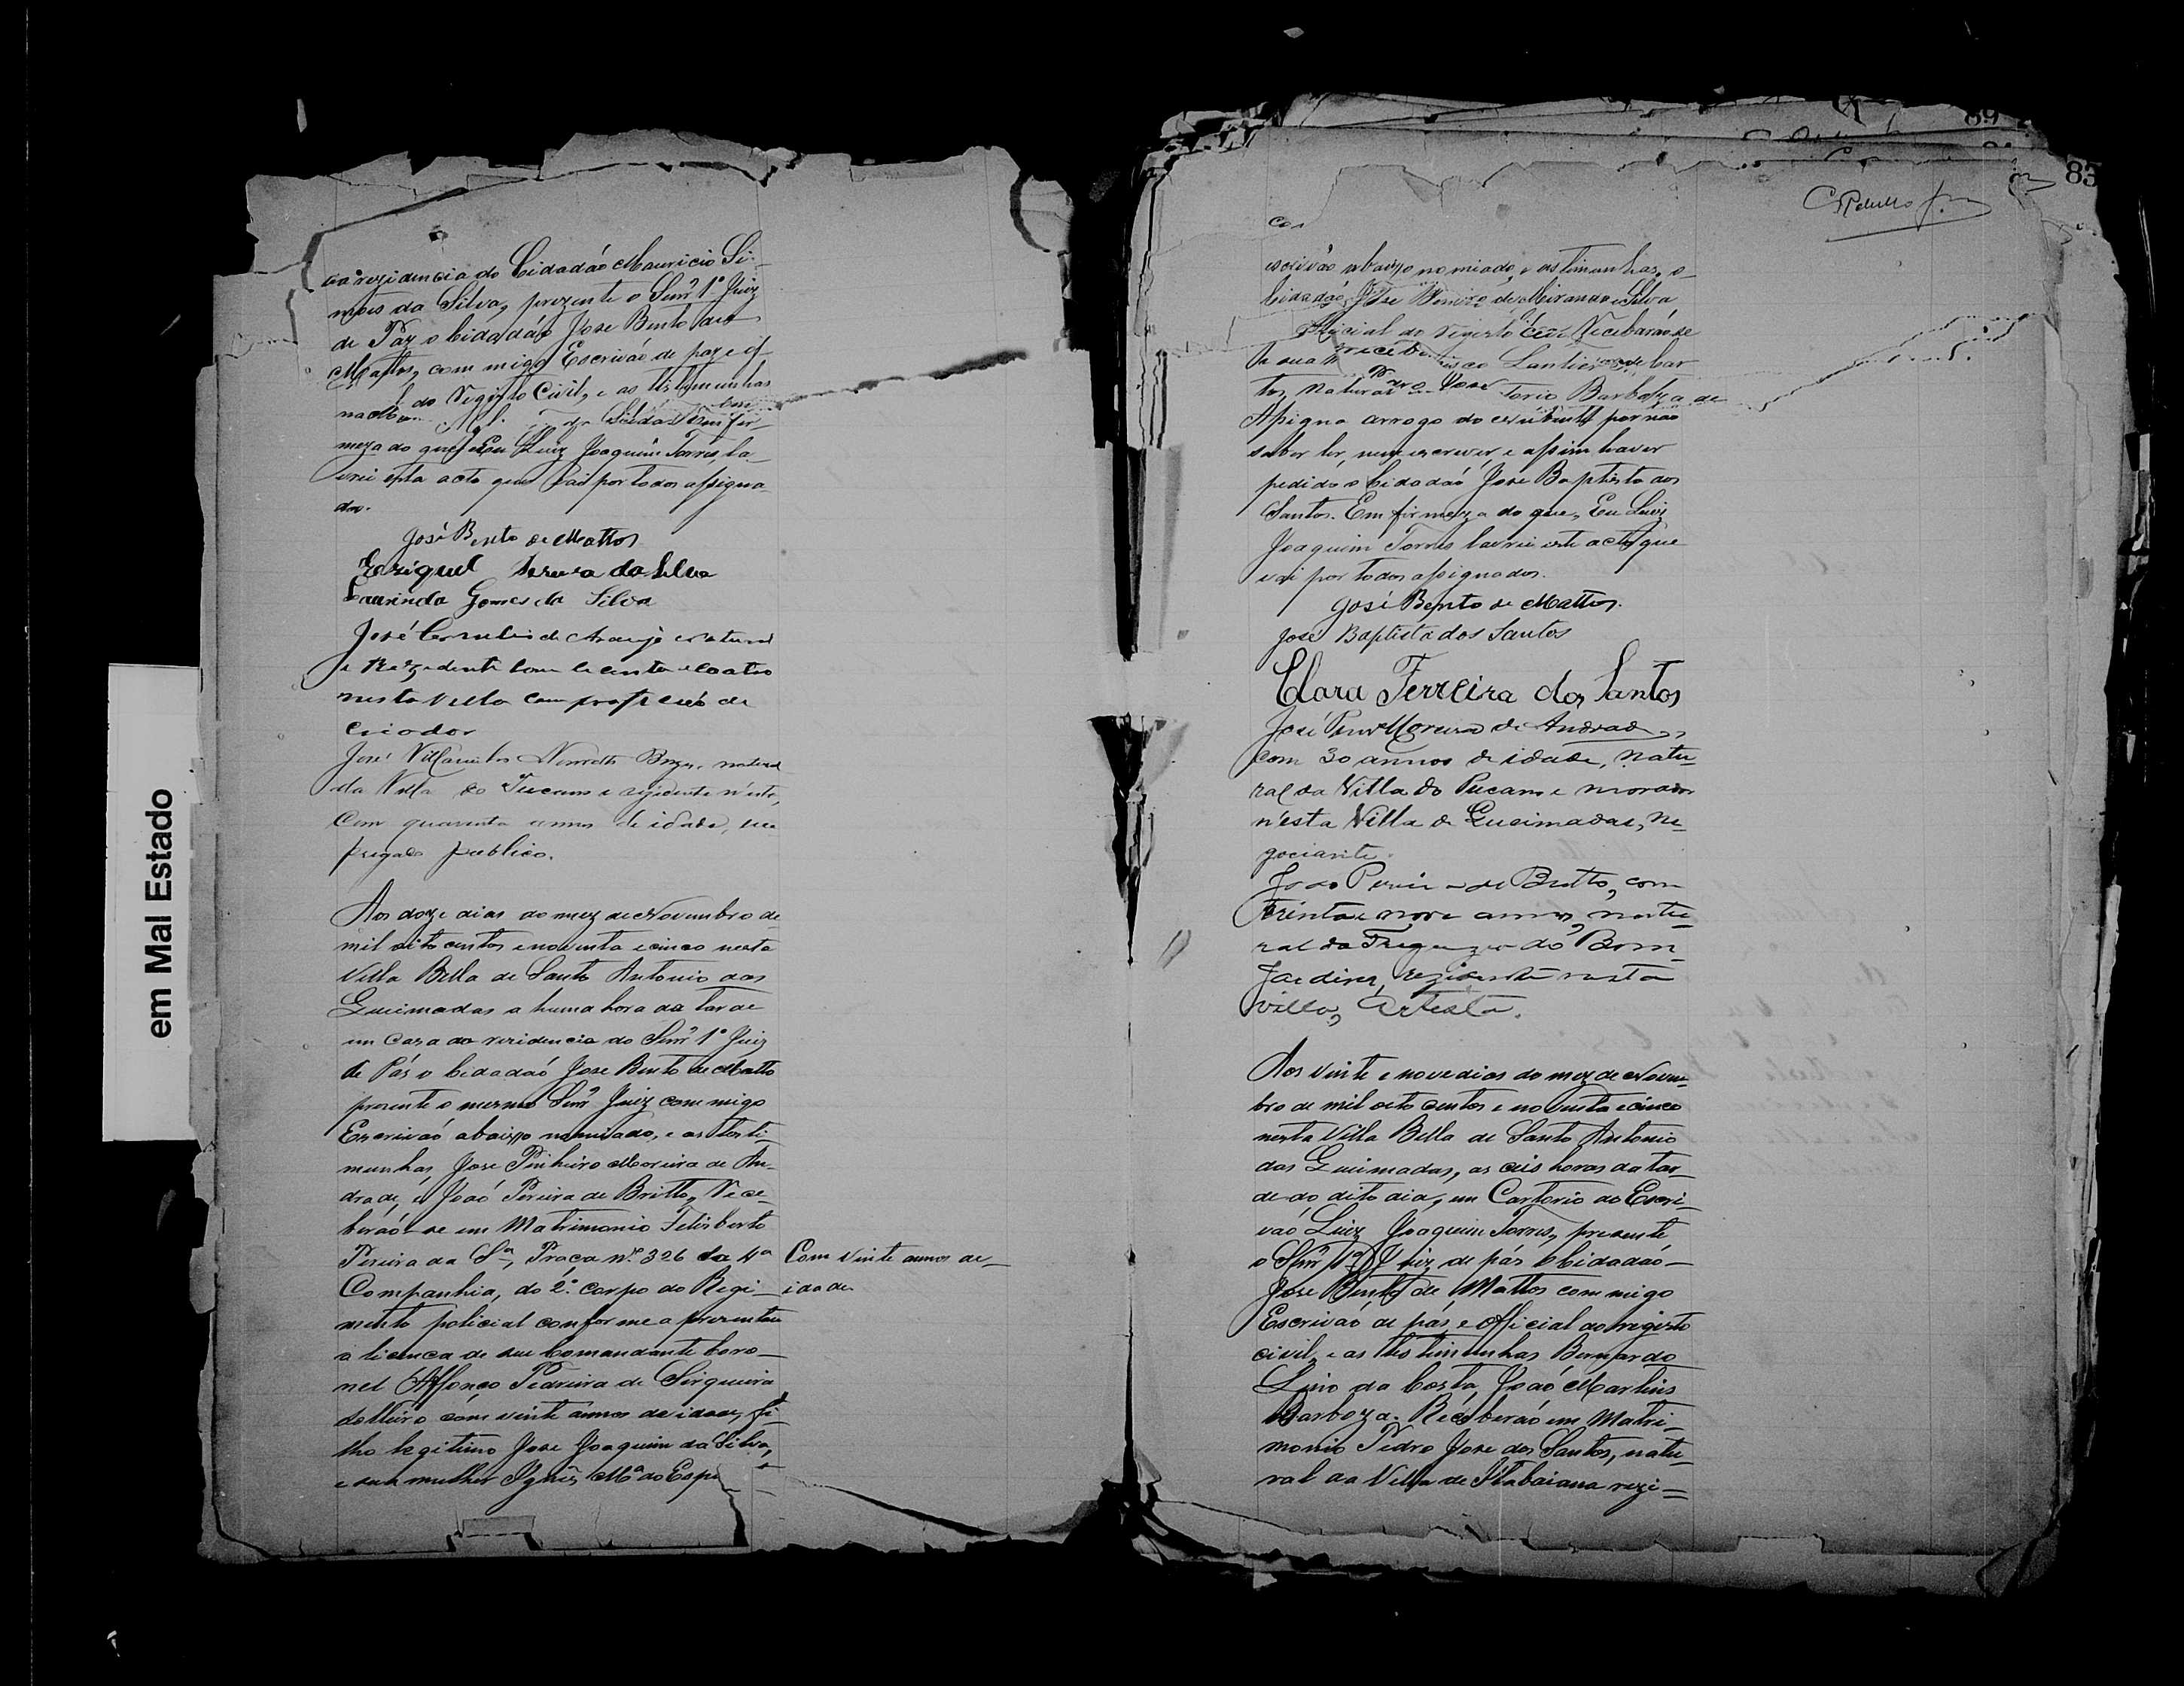 em Mal Estado
rezidencia do Cidadão Mauricio Si-
mois da Silva, prezente o Senr. 1º Juiz
de Paz o Cidadão Jose Bento de
Mattos, com migo Escrivão de paz e of
do Registo Civil, e as testimunhas
meza do que, Eu Luiz Joaquim Torres, la-
vrei esta acto que vai por todos assigna-
do.
José Bento de Mattos
Eziquel da Silva
Laurinda Gomes da Silva
José de Araujo natural
e Rezedente com e coatro
nesta Villa com de
Criador
José natural
da Villa do Tucano e rezidente n'esta,
Com quarenta annos de idade, em
pregado publico.
Aos doze dias do mez de Novembro de
mil oito centos e noventa e cinco nesta
Villa Bella de Santo Antonio das
Queimadas a huma hora da tarde
em caza da rezidencia do Senr. 1º Juiz
de Pás o Cidadaó Jose Bento de Matto
prezente o mesmo Senr. Juiz com migo
Escrivaó abaixo nomiado, e as testi-
munhas Jose Pinheiro Moreira de An-
drade, e Joaó Pereira de Britto, Rece-
beraó-se em Matrimonio Felisberto
Pereira da Sª, Praca nº 326 da 4ª
Com vinte annos de
idade
Companhia, do 2º Corpo do Regi-
mento policial conforme a prezentou
a licenca de seu Comandante Coro-
nel Affonço Pedreira de Sirqueira
solteiro com vinte annos de idade, fi-
lho legitimo Jose Joaquim da Silva,
e sua mulher Ignês Mª do Espi
83
escrivão abaixo nomiado, e as timunhas, o
Cidadão Jose de Miranda e Silva
Official do registo Civil Receberão se
Assigna arrogo do por não
saber ler, nem escrever, e assim haver
pedido o Cidadaó Jose Baptista dos
Santos. Em firmeza do que, Eu Luiz
Joaquim Torres lavrei este acto que
vai por todos assignados.
José Bento de Mattos.
José Baptista dos Santos
Clara Ferreira dos Santos
José Moreira de Andrade,
com 30 annos de idade, natu-
ral da Villa do Tucano e morador
n'esta Villa de Queimadas, ne-
gociante.
João Pereira de Britto, com
trinta e nove annos, natu
ral da Freguezia do Bom
Jardim, rezidente nesta
villa, Artesta.
Aos vinte e nove dias do mez de Novem-
bro de mil oito centos e noventa e cinco
nesta Villa Bella de Santo Antonio
das Queimadas, as ceis horas da tar-
de do dito dia, em Cartorio do Escri-
vaó Luiz Joaquim Torres, presente
o Senr. 1º Juiz de pás o Cidadaó
Jose Bento de Mattos com migo
Escrivaó de pás e Official do registo
civil, e as testimunhas Bernardo
da Costa, Joaó Martins
Barboza. Receberaó em Matri-
monio Pedro Jose dos Santos, natu-
ral da Villa de Itabaiana rezi-